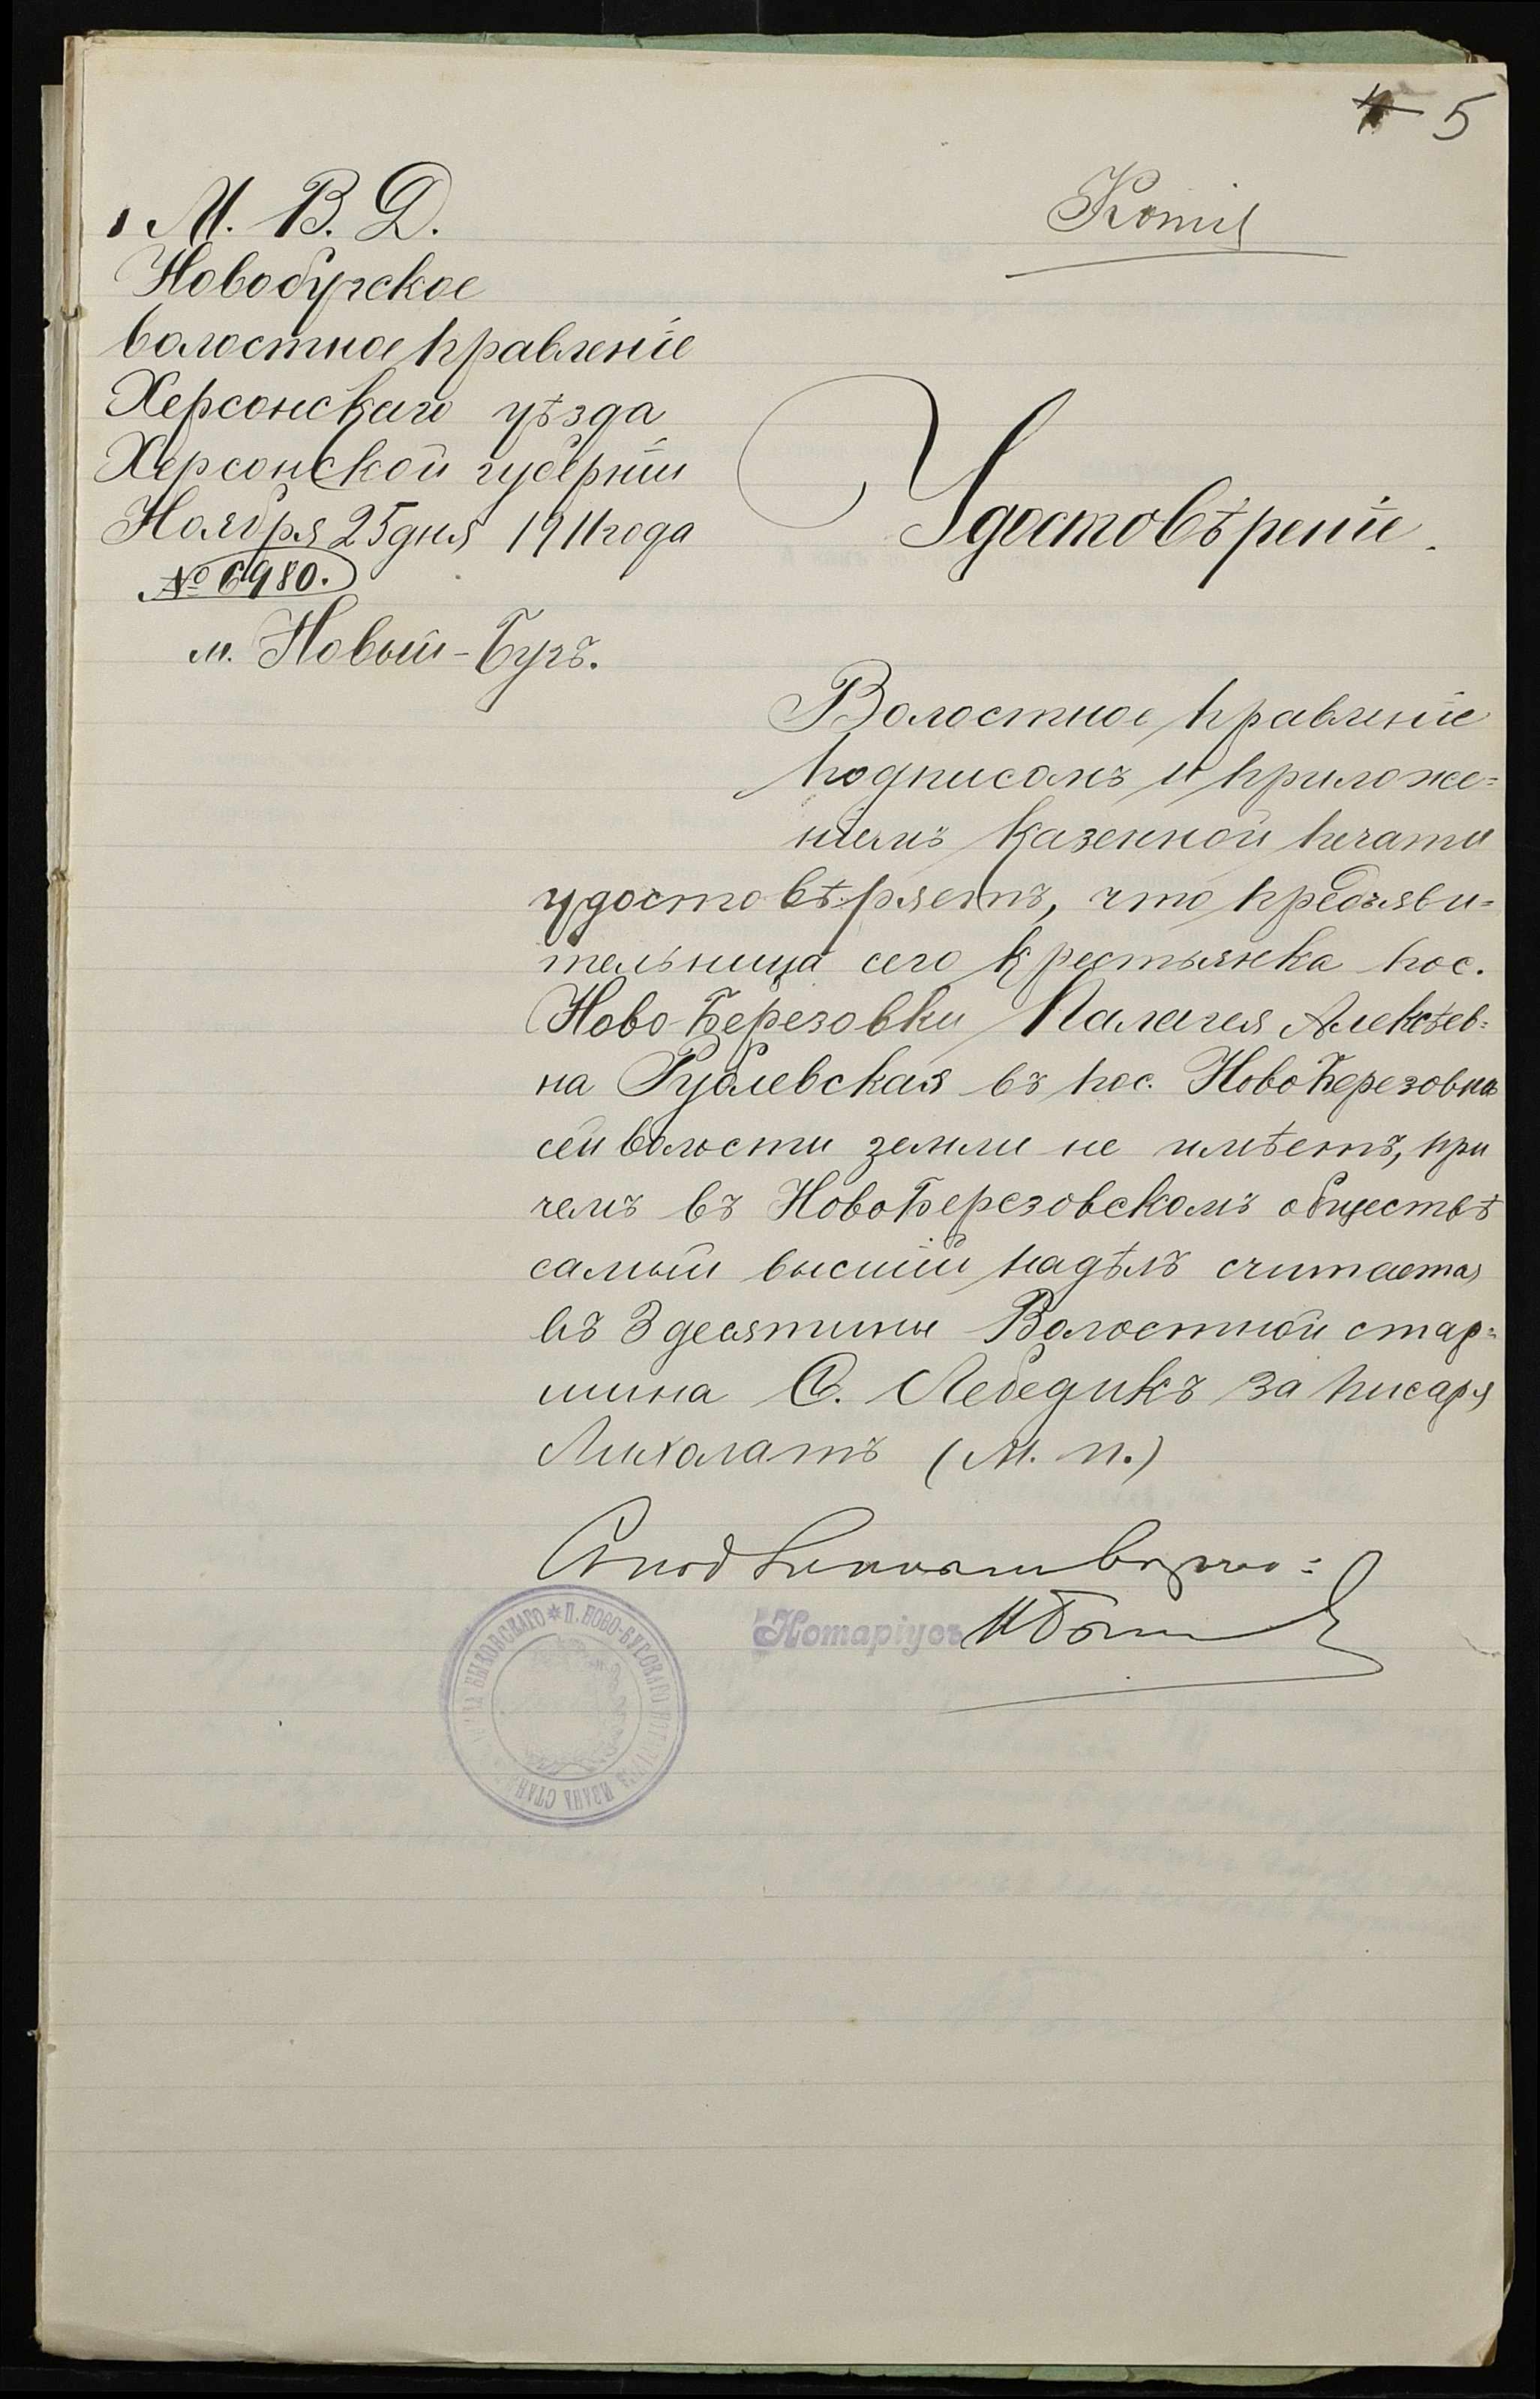 5
Копія
М. В. Д.
Новобугское
волостное правленіе
Херсонскаго уѣзда
Херсонской губерніи
Ноября 25 дня 1911 года
№ 6980.
м. Новый-Бугъ.
Удостовѣреніе.
Волостное правленіе
подписомъ и приложе=
ніемъ казенной печати
удостовѣряетъ, что предъяви=
тельница сего крестьянка пос.
Ново-Березовки Палагея Алексѣев=
на Рублевская въ пос. НовоБерезовка
сей волости земли не имѣетъ, при
чемъ въ НовоБерезовскомъ обществѣ
самый высшій надѣлъ считается
въ 3 десятины Волостной стар=
шина С. Лебедикъ за писаря
Лихолатъ (М. п.)
Съ под вѣрно:
Нотаріусъ
П. НОВО-БУГСКАГО НОТАРІУСА ИВАНА СТАН БЫКОВСКАГО